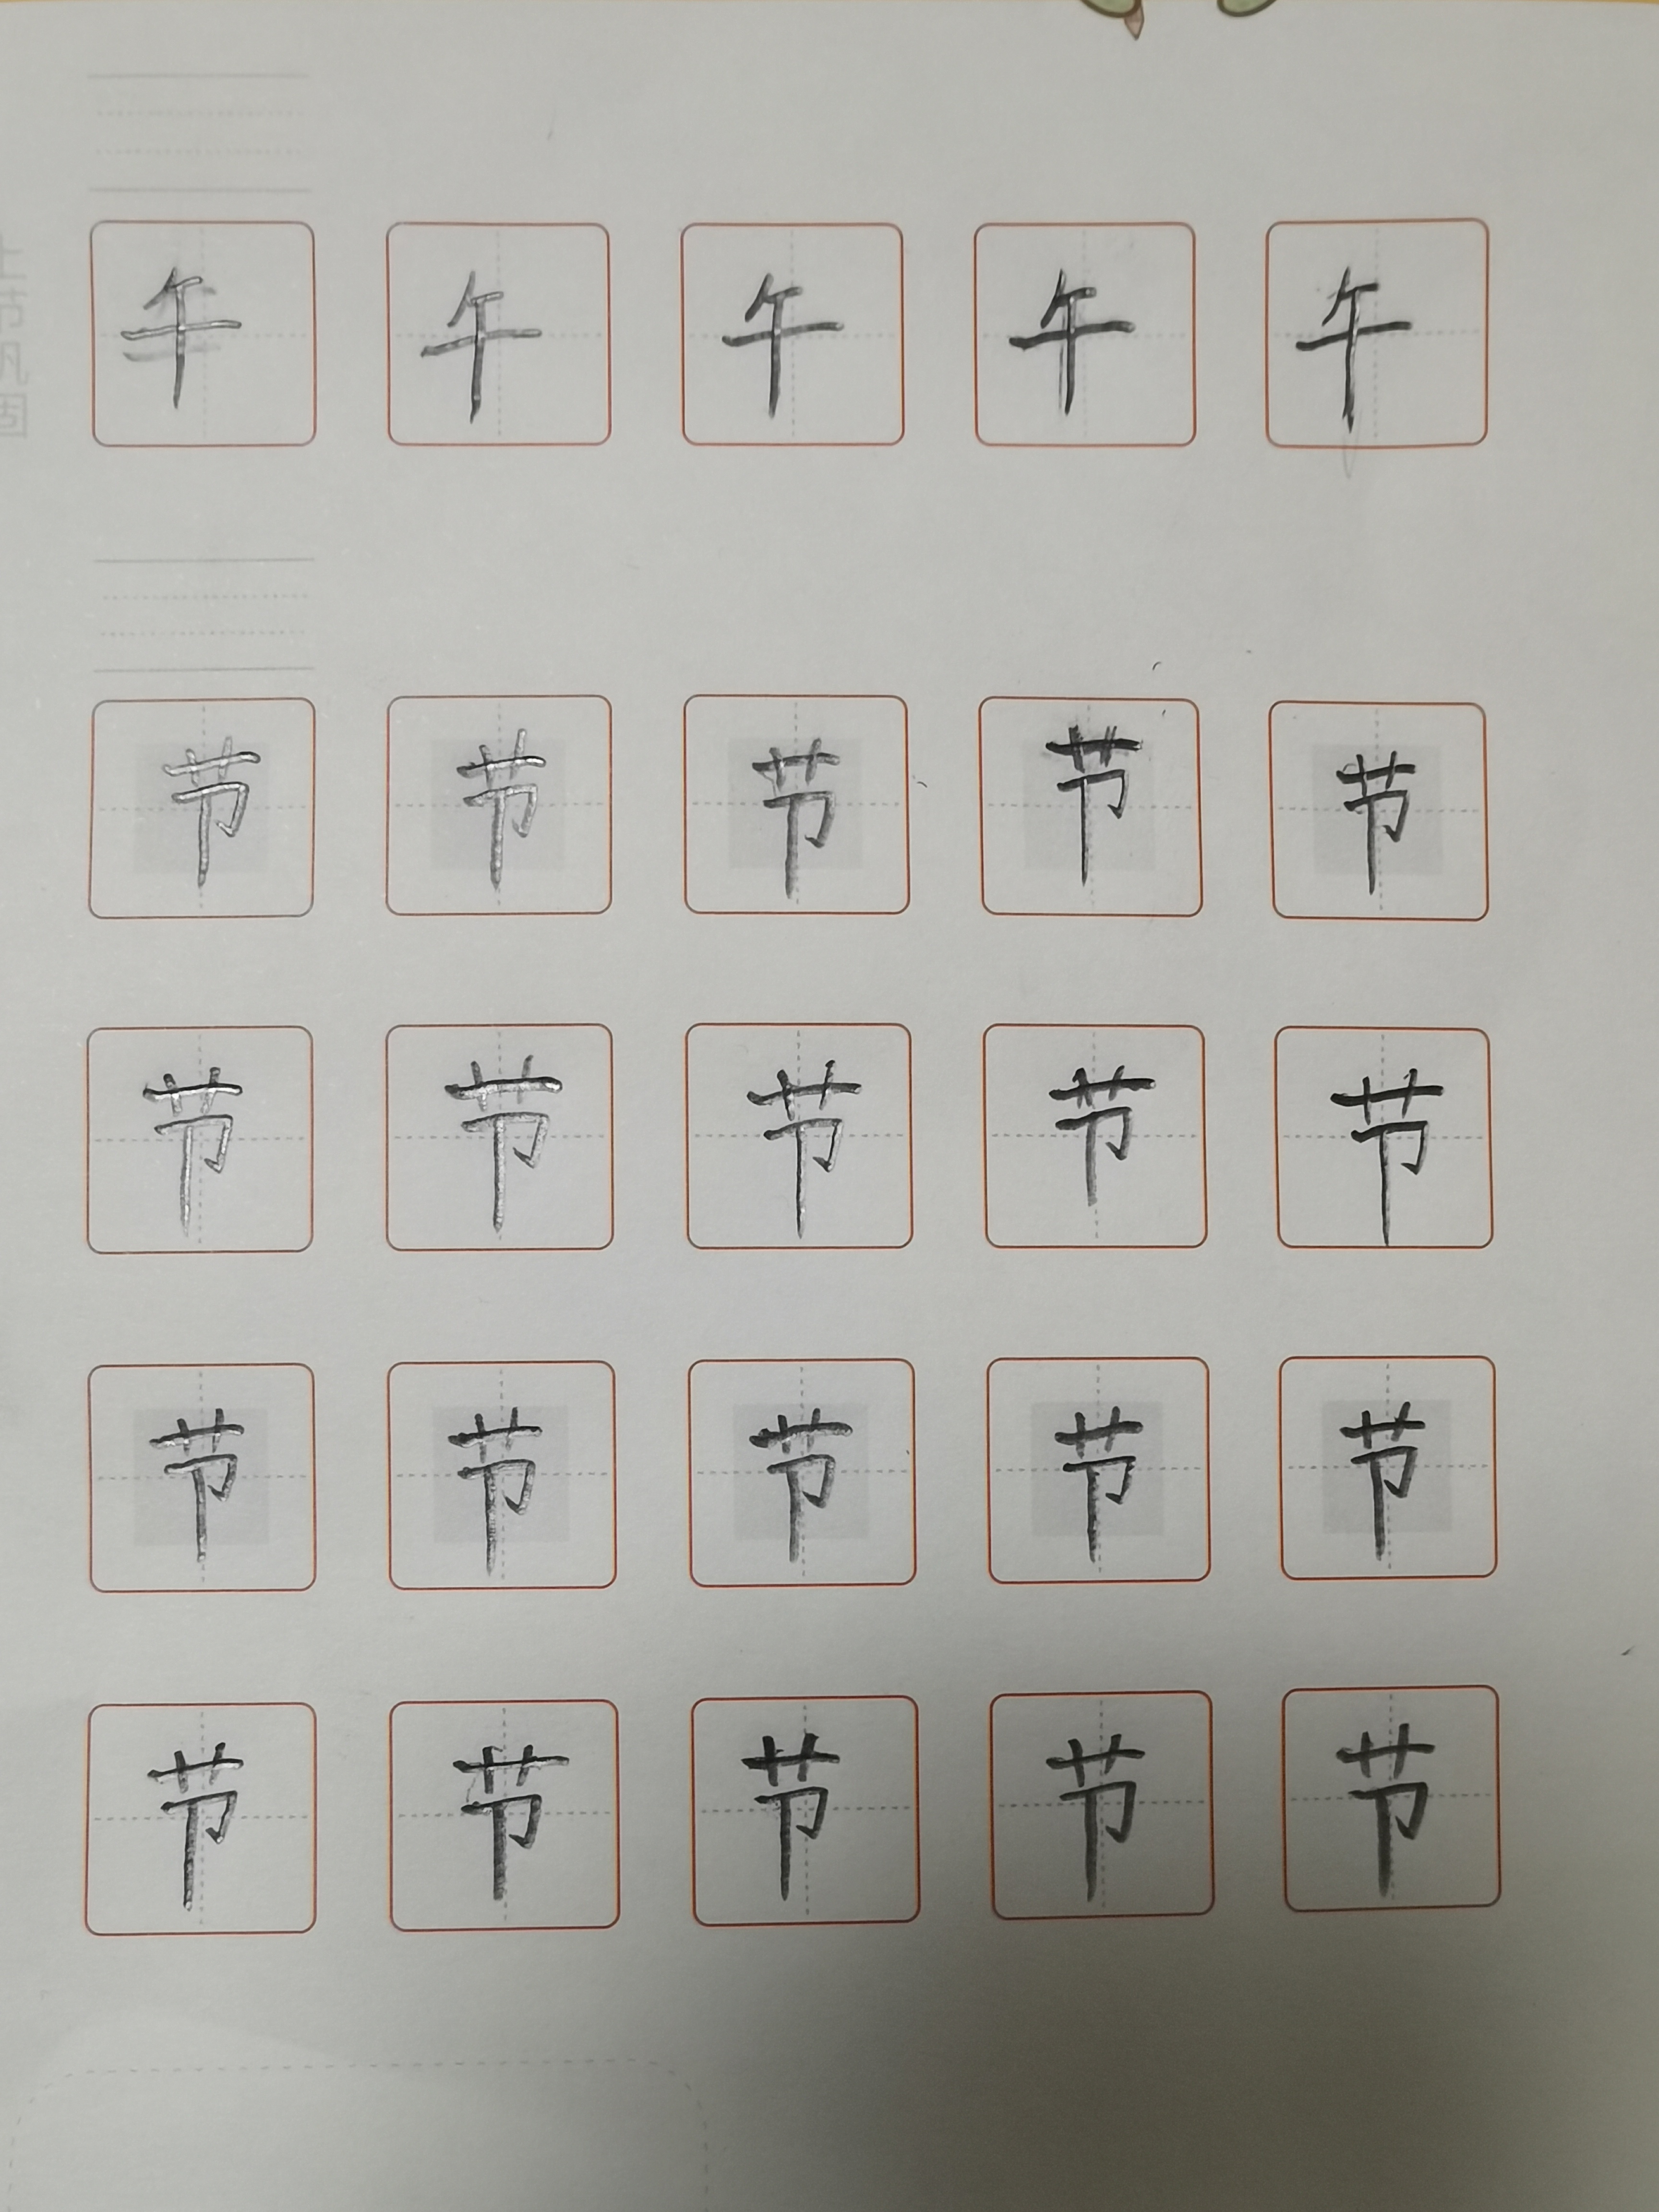 午 午 午 午 午
节 节 节 节 节
节 节 节 节 节
节 节 节 节 节
节 节 节 节 节